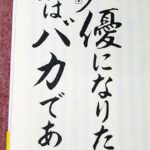 優になりた
はバカであ